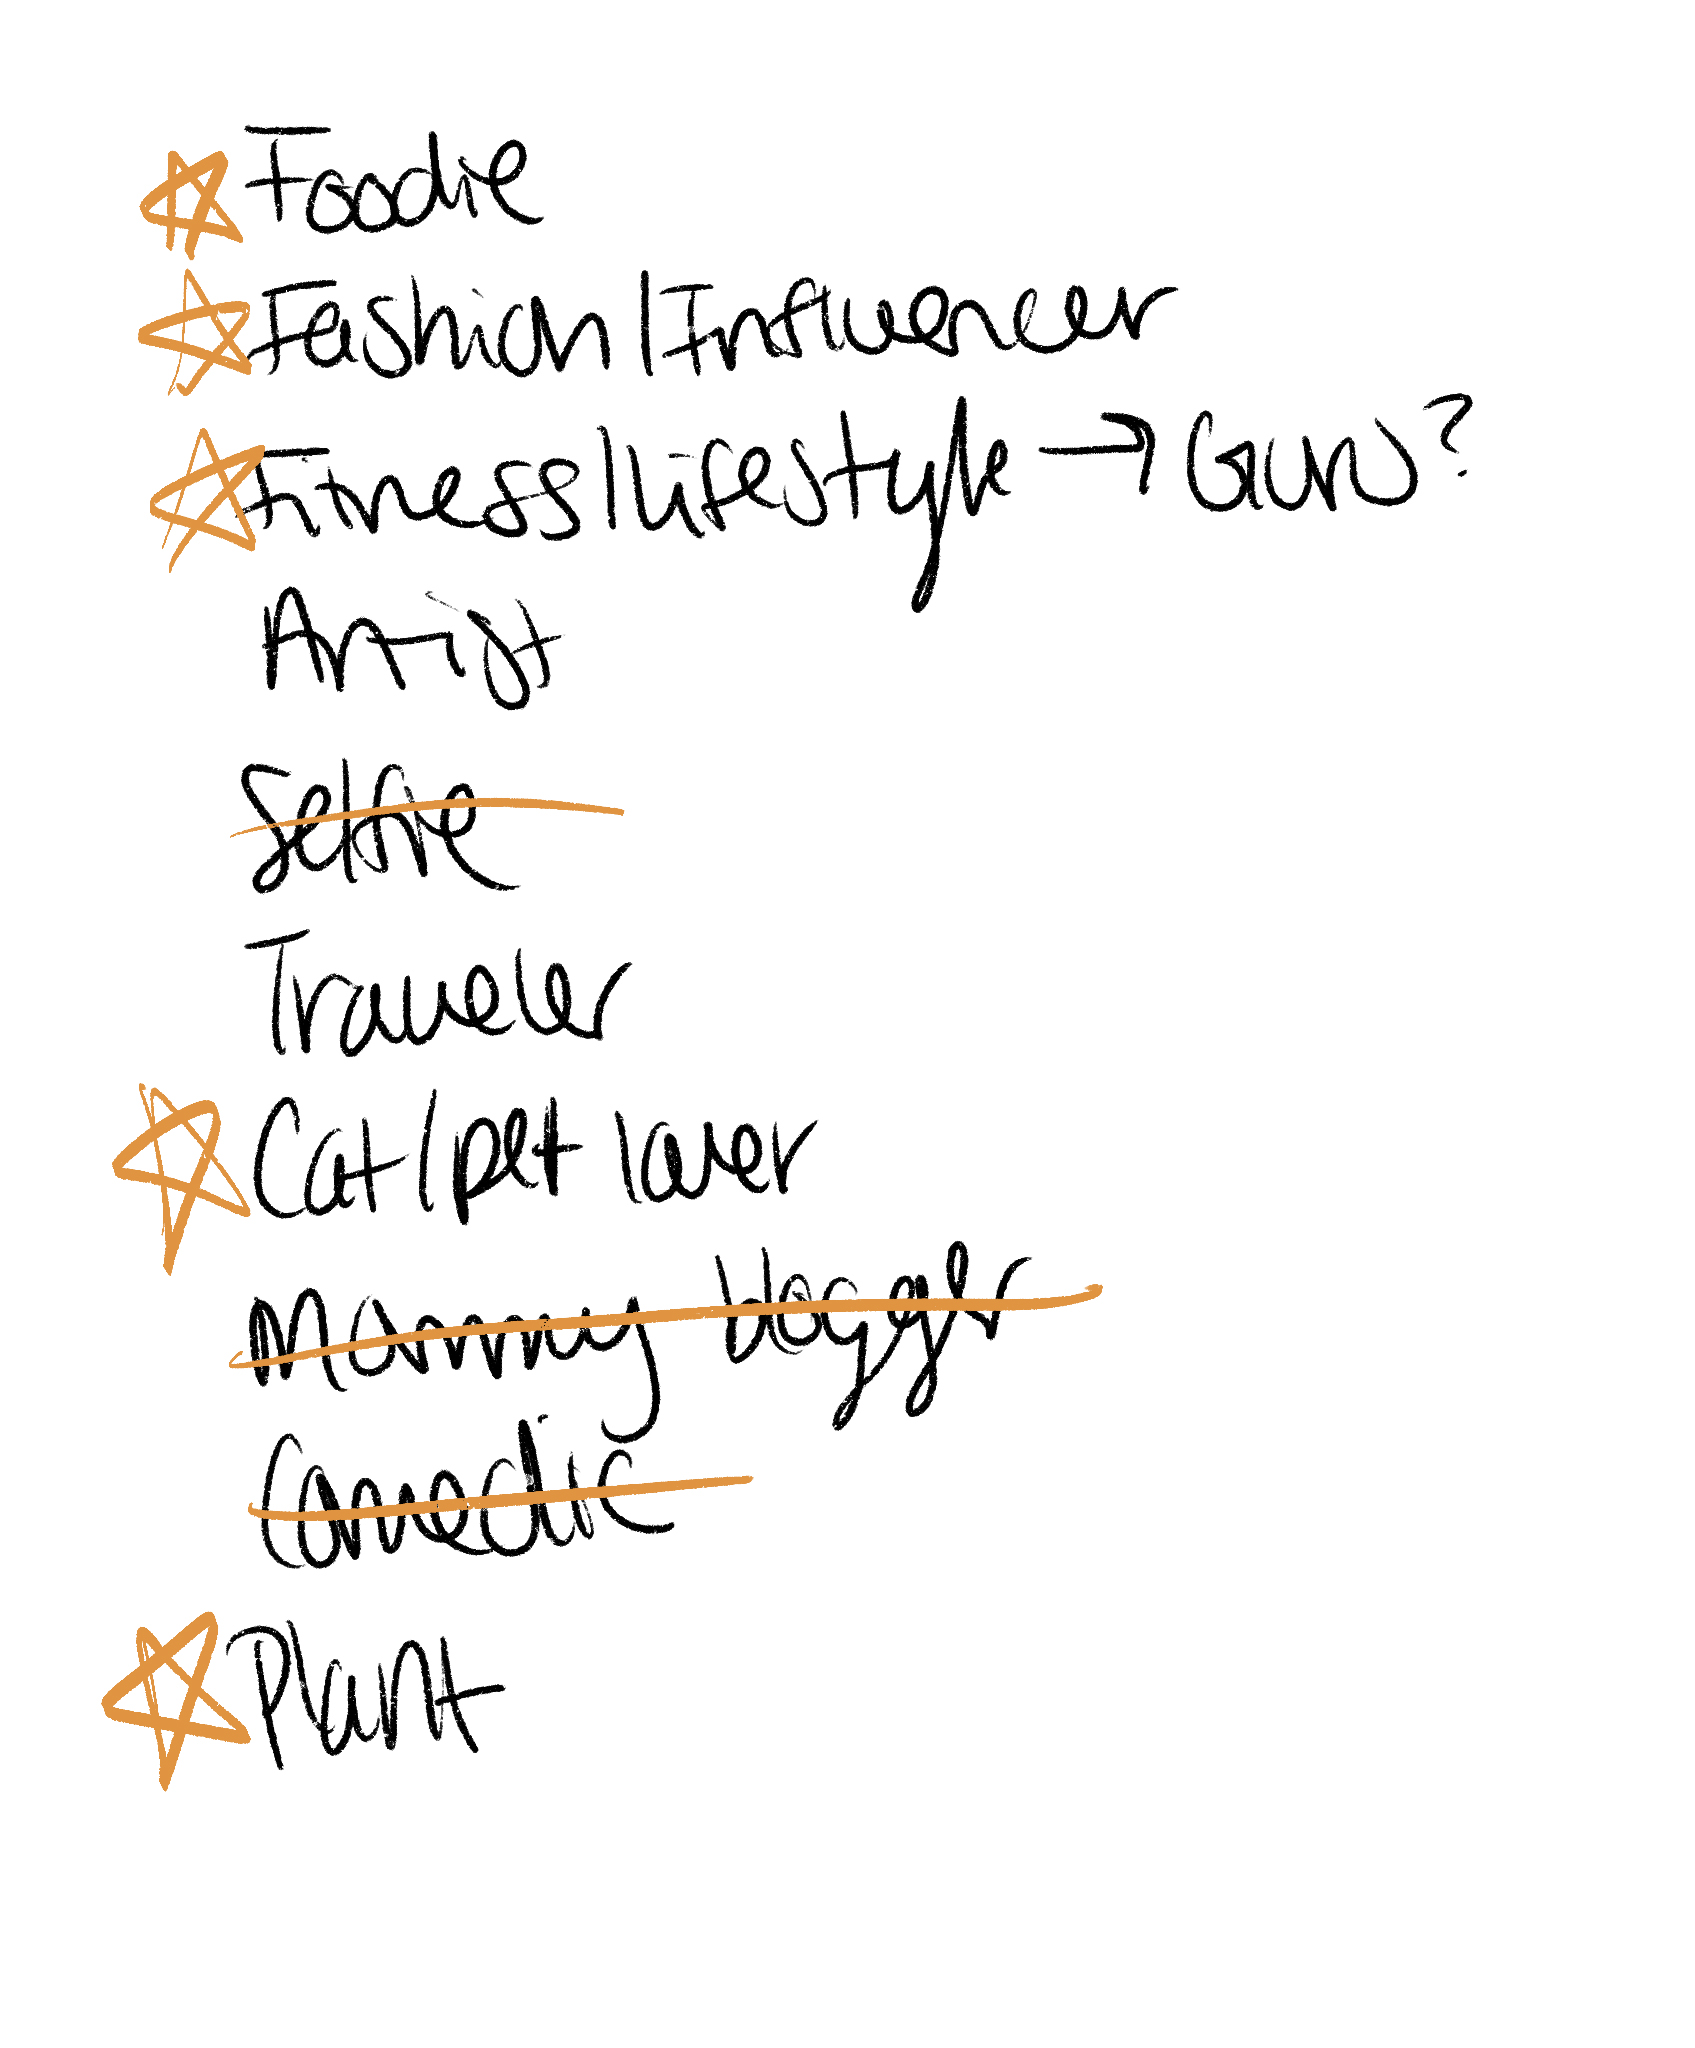 Foodie
Fashion/Influencer
Fitness/lifestyle → Guru?
Artist
Selfie
Traveler
Cat/pet lover
Mommy blogger
Comedic
Plant